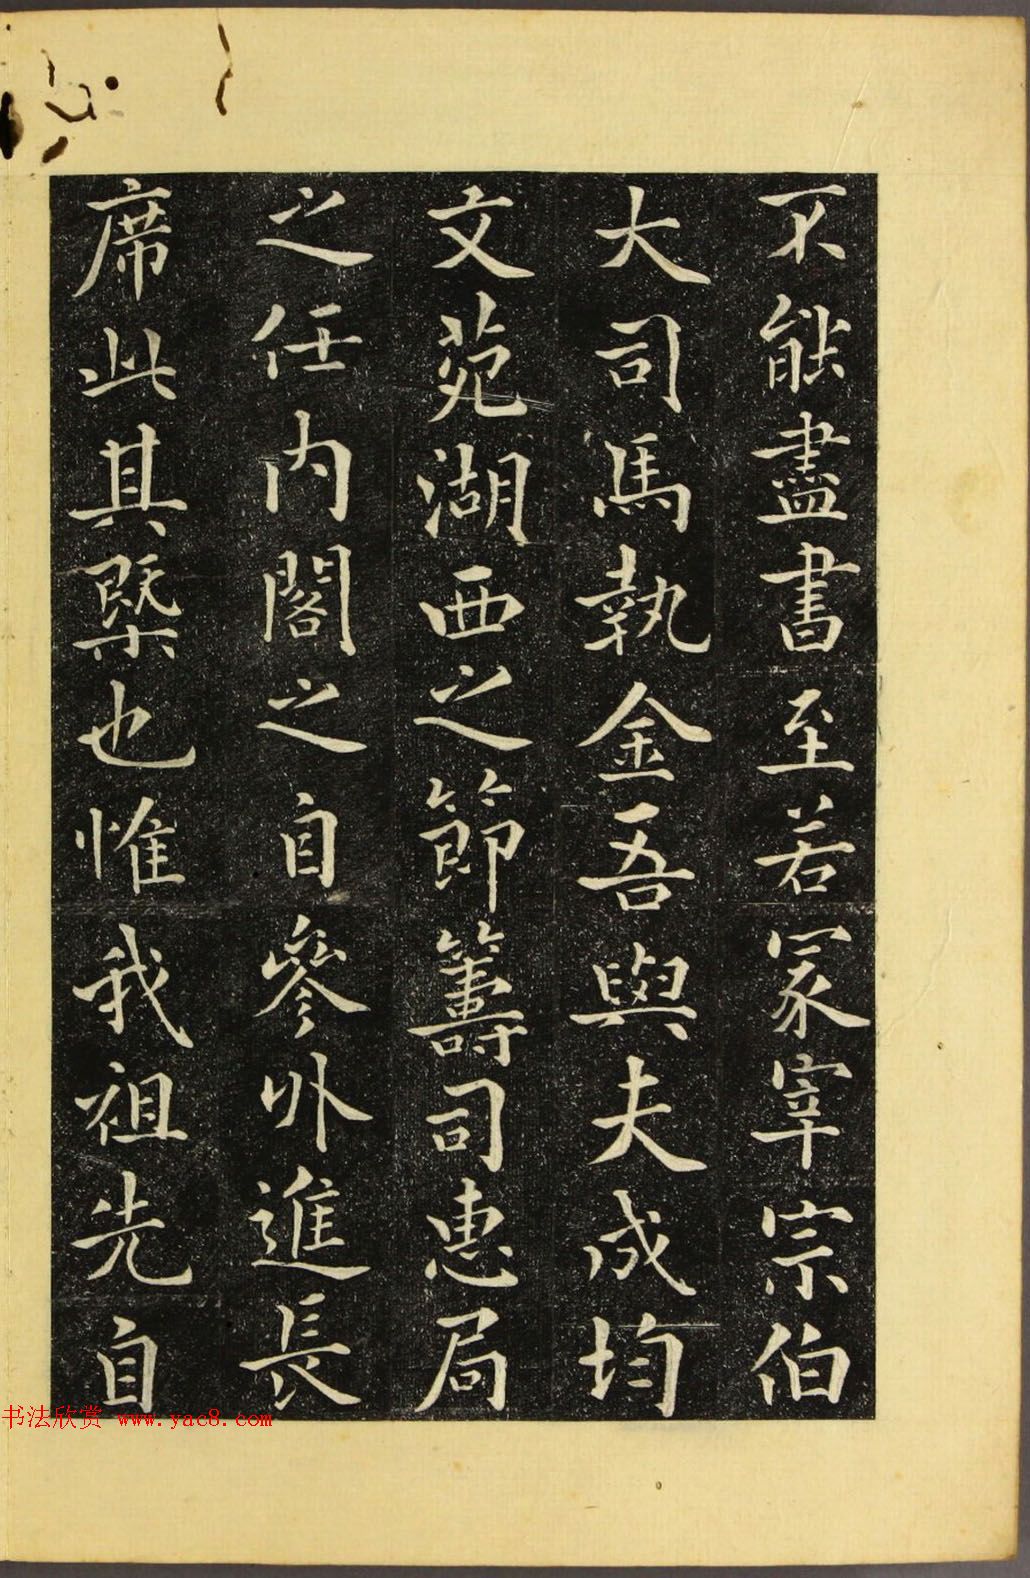 不能盡書至若冢宰宗伯
大司馬執金吾與夫成均
文苑湖西之節籌司惠局
之任内閣之自參外進長
席此其槩也惟我祖先自
书法欣赏 www.yac8.com